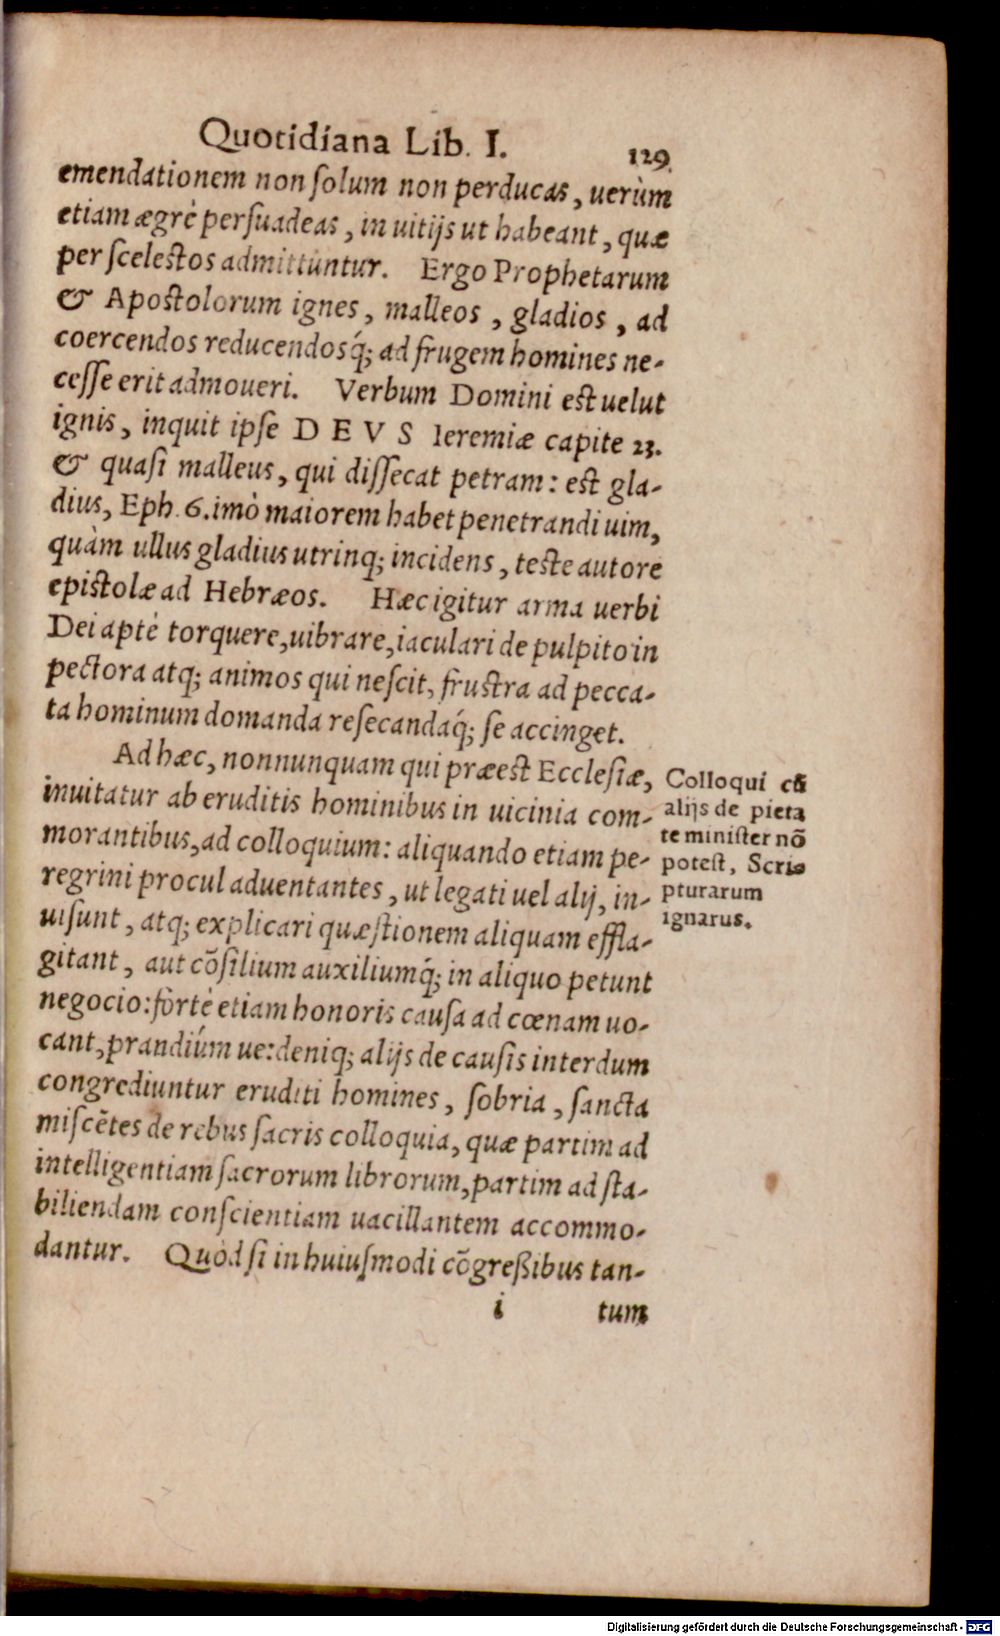 Quotidiana Lib. I. 129
emendationem non ſolum non perducas, uerùm
etiam ægrè perſuadeas, in uitijs ut habeant, quæ
per ſceleſtos admittuntur. Ergo Prophetarum
& Apoſtolorum ignes, malleos, gladios, ad
coercendos reducendosq́; ad frugem homines ne-
ceſſe erit admoueri. Verbum Domini eſt uelut
ignis, inquit ipſe DEVS Ieremiæ capite 23.
& quaſi malleus, qui diſſecat petram: eſt gla-
dius, Eph. 6. imò maiorem habet penetrandi uim,
quàm ullus gladius utrinq; incidens, teſte autore
epiſtolæ ad Hebræos. Hæc igitur arma uerbi
Dei aptè torquere, uibrare, iaculari de pulpito in
pectora atq; animos qui neſcit, fruſtra ad pecca-
ta hominum domanda reſecandaq́; ſe accinget.
Ad hæc, nonnunquam qui præeſt Eccleſiæ,
inuitatur ab eruditis hominibus in uicinia com-
morantibus, ad colloquium: aliquando etiam pe-
regrini procul aduentantes, ut legati uel alij, in-
uiſunt, atq; explicari quæſtionem aliquam effla-
gitant, aut cõſilium auxiliumq́; in aliquo petunt
negocio: fortè etiam honoris cauſa ad cœnam uo-
cant, prandiúm ue: deniq; alijs de cauſis interdum
congrediuntur eruditi homines, ſobria, ſancta
miſcẽtes de rebus ſacris colloquia, quæ partim ad
intelligentiam ſacrorum librorum, partim ad ſta-
biliendam conſcientiam uacillantem accommo-
dantur. Quòd ſi in huiuſmodi cõgreßibus tan-
i tum
Colloqui cũ
alijs de pieta
te miniſter nõ
poteſt, Scri-
pturarum
ignarus.
Digitalisierung gefördert durch die Deutsche Forschungsgemeinschaft - DFG